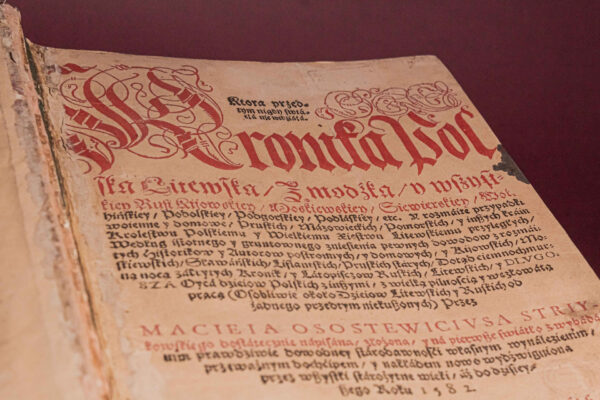 Ktora przed-
tym nigdy świá-
tłá nie widziáłá.
Kronika Pol
ska Litewska / Zmodzka / y wszystkiey Rusi Kijowskiey / Moskiewskiey / Siewierskiey / Wol-
hińskiey / Podolskiey / Podgorskiey / Podláskiey / etc. Y rozmáite przypadki
woienne y domowe / Pruskich / Mázowieckich / Pomorskich / y inszych kráin
Krolestwu Polskiemu y Wielkiemu Xięstwu Litewskiemu przyległych /
Według istotnego y gruntownego zniesienia pewnych dowodow z rozmái-
tych Historikow y Autorow postronnych / y domowych / y Kijowskich / Mo-
skiewskich / Sławáńskich / Liflantskich / Pruskich stárych / Dotąd ciemnochmur-
ną nocą zákrytych Kronik / y Látopiszcow Ruskich / Litewskich / y DLUGO-
SZA Oycá dzieiow Polskich z inszymi / z wielką pilnością y
pracą (Osobliwie około Dzieiow Litewskich y Ruskich od
żadnego przedtym niekuszonych) Przez
MACIEIA OSOSTEWICIUSA STRIY
kowskiego dostátecznie nápisána / złożona / y ná pierwsze świátło
nim prawdziwie dowodney stárodawności własnym wynálezieniem /
przeważnym dochcipem / y nakładem nowo wydźwigniona
przez wszystki stárożytne wieki / áż do dzisiey-
szego Roku 1582.